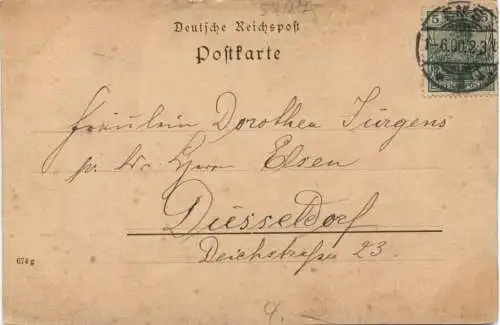 Deutsche Reichspost
Postkarte
5
EMS
1-6.00.2-3N
Fräulein Dorothea Jürgens
p. Adr. Herrn Elsen
Düsseldorf
Deichstraße 23.
674 g
4.-